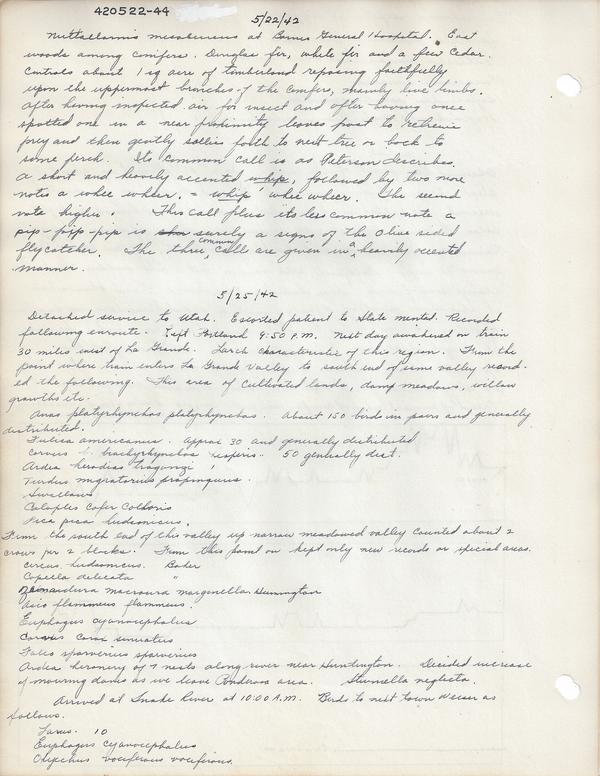 420522-44
5/22/42
Nuttallornis mesoleucus at Barnes General Hospital. East
woods among conifers. Douglas fir, white fir and a few Cedar.
Controls about 1 sq acre of timberland reposing faithfully
upon the uppermost branches of the conifer, mainly live limbs.
After having inspected air for insect and after having once
spotted one in a near proximity leaves post to retrieve
prey and then gently sallies forth to next tree or back to
same perch. Its common call is as Peterson describes.
a short and heavily accented whip, followed by two more
notes a whee wheer. = whip' whee wheer. The second
note higher. This call plus its less common note a
pip-pip-pip is surely a signs of the Olive sided
flycatcher. The three common calls are given in a heavily accented
manner.
5/25/42
Detached service to Utah. Escorted patient to State mental. Recorded
following enroute. Left Portland 9:50 P.M. Next day awakened on train
30 miles east of La Grande. Larch characteristic of this region. From the
point where train enters La Grande Valley to south end of same valley record-
ed the following. This area of cultivated lands, damp meadows, willow
growths etc.
Anas platyrhynchos platyrhynchos. About 150 birds in pairs and generally
distributed.
Fulica americana. Approx 30 and generally distributed
Corvus b. brachyrhynchos hesperis. 50 generally dist.
Ardea herodias
Turdus migratorius propinquus.
Swallows
Colaptes cafer collaris
Pica pica hudsonicus.
From the south end of this valley up narrow meadowed valley counted about 2
crows per 2 blocks. From this point on kept only new records or special areas.
Circus hudsonicus. Baker
Capella delicata "
Zenaidura macroura marginella. Huntington
Asio flammeus flammeus.
Euphagus cyanocephalus
Corvus corax sinuatus
Falco sparverius sparverius
Ardea heronery of 7 nests along river near Huntington. Decided increase
of mourning doves as we leave Ponderosa area. Sturnella neglecta.
Arrived at Snake River at 10:00 A.M. Birds to next town Weiser as
follows.
Larus. 10
Euphagus cyanocephalus
Oxyechus vociferous vociferous.